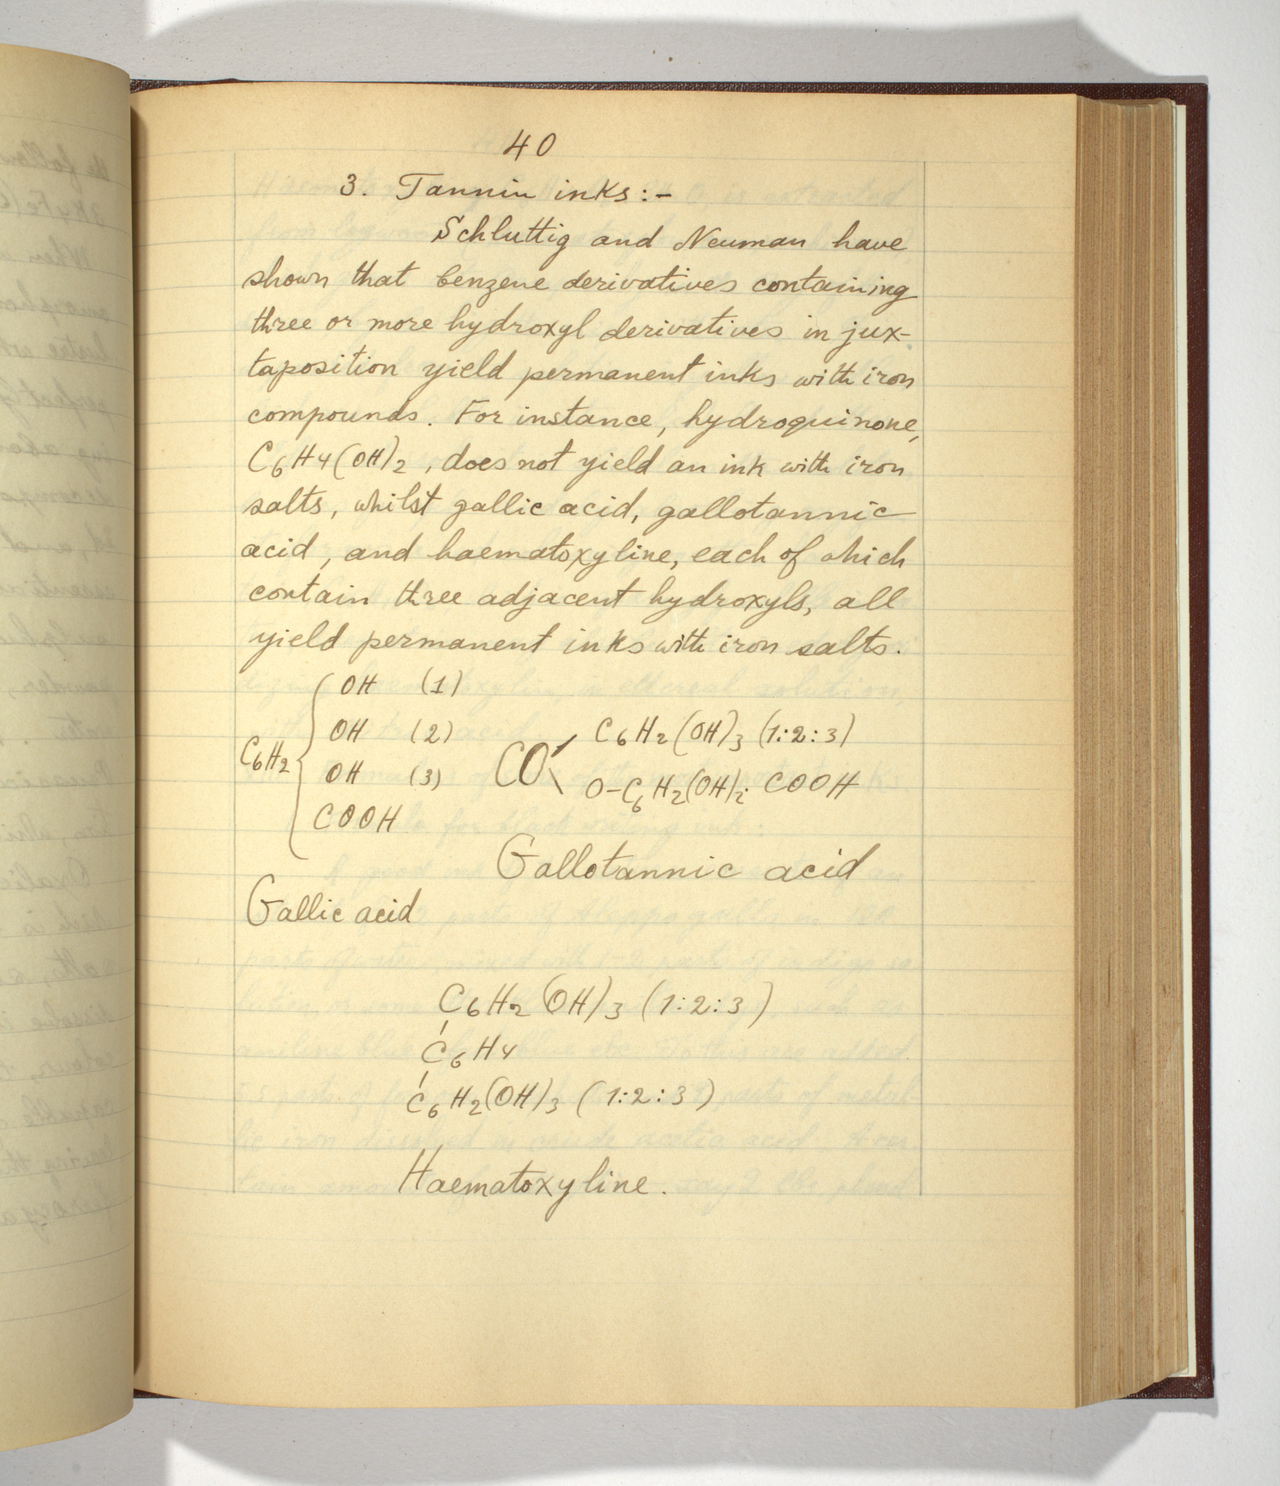 40
3. Tannin inks:-
Schluttig and Neuman have
shown that benzene derivatives containing
three or more hydroxyl derivatives in jux-
taposition yield permanent inks with iron
compounds. For instance, hydroquinone,
C6H4(OH)2, does not yield an ink with iron
salts, whilst gallic acid, gallotannic
acid, and haematoxyline, each of which
contain three adjacent hydroxyls, all
yield permanent inks with iron salts.
OH (1)
OH (2)
C6H2 OH (3)
COOH
C6H2(OH)3 (1:2:3)
CO
O-C6H2(OH)2 COOH
Gallotannic acid
Gallic acid
C6H2(OH)3 (1:2:3)
C6H4
C6H2(OH)3 (1:2:3)
Haematoxyline.